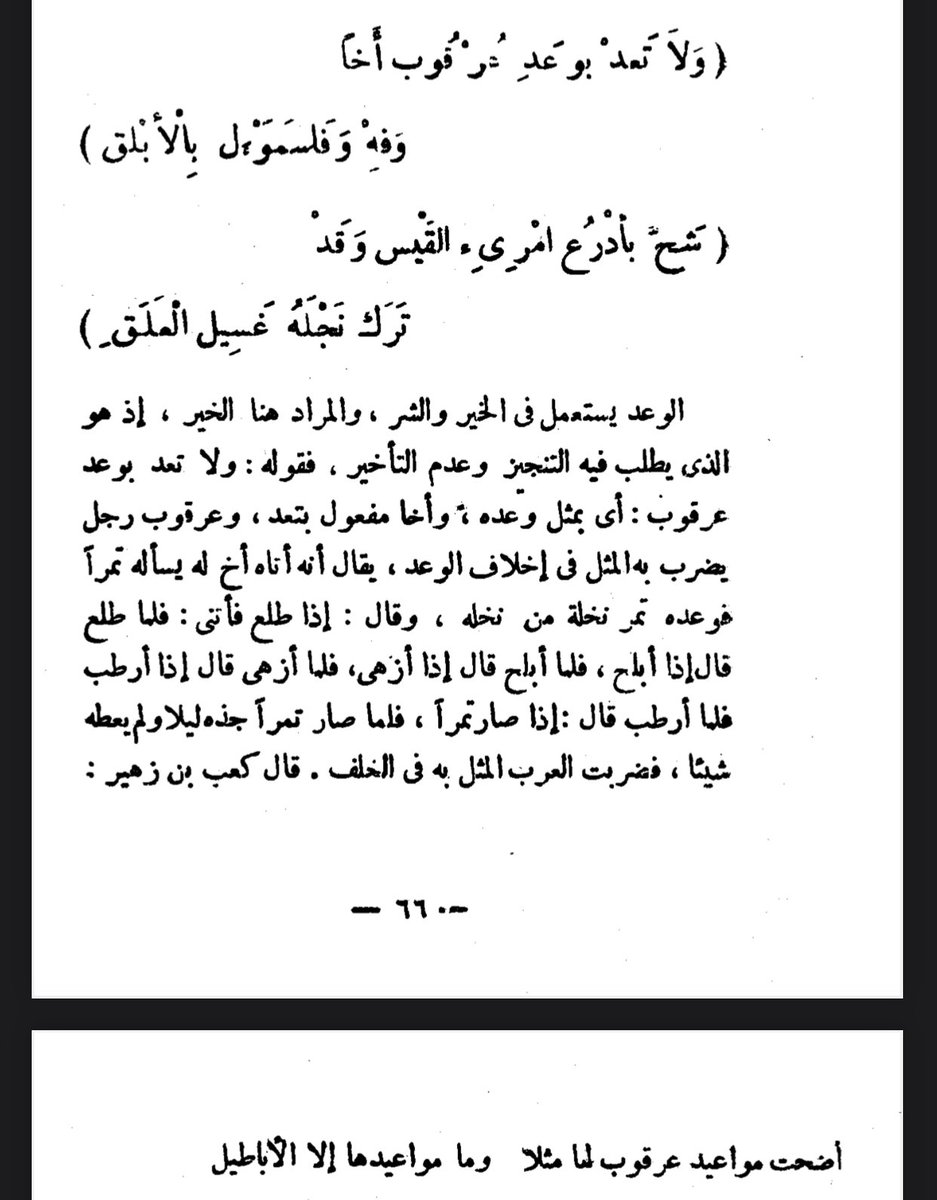 ( وَلاَ تَعدْ بوعَدِ عُرْقُوب أَخاً
وَفِهْ وَفَا سَمَوْءل بِالْأَبْلق )
( شحَّ بأدْرُع امْرِىء القَيْس وَقَدْ
تَرَك نَجْلَهُ غَسِيل الْعَلَقِ )
الوعد يستعمل فى الخير والشر ، والمراد هنا الخير ، إذ هو
الذى يطلب فيه التنجيز وعدم التأخير ، فقوله : ولا تعد بوعد
عرقوب : أى بمثل وعده ، وأخا مفعول بتعد ، وعرقوب رجل
يضرب به المثل فى إخلاف الوعد ، يقال أنه أتاه أخ له يسأله تمراً
فوعده تمر نخلة من نخله ، وقال : إذا طلع فأتنى : فلما طلع
قال إذا أبلح ، فلما أبلح قال إذا أزهى، فلما أزهى قال إذا أرطب
فلما أرطب قال : إذا صار تمراً ، فلما صار تمراً جذه ليلا ولم يعطه
شيئا ، فضربت العرب المثل به فى الخلف . قال كعب بن زهير :
— ٦٦ —
أضحت مواعيد عرقوب لها مثلا وما مواعيدها إلا الأباطيل